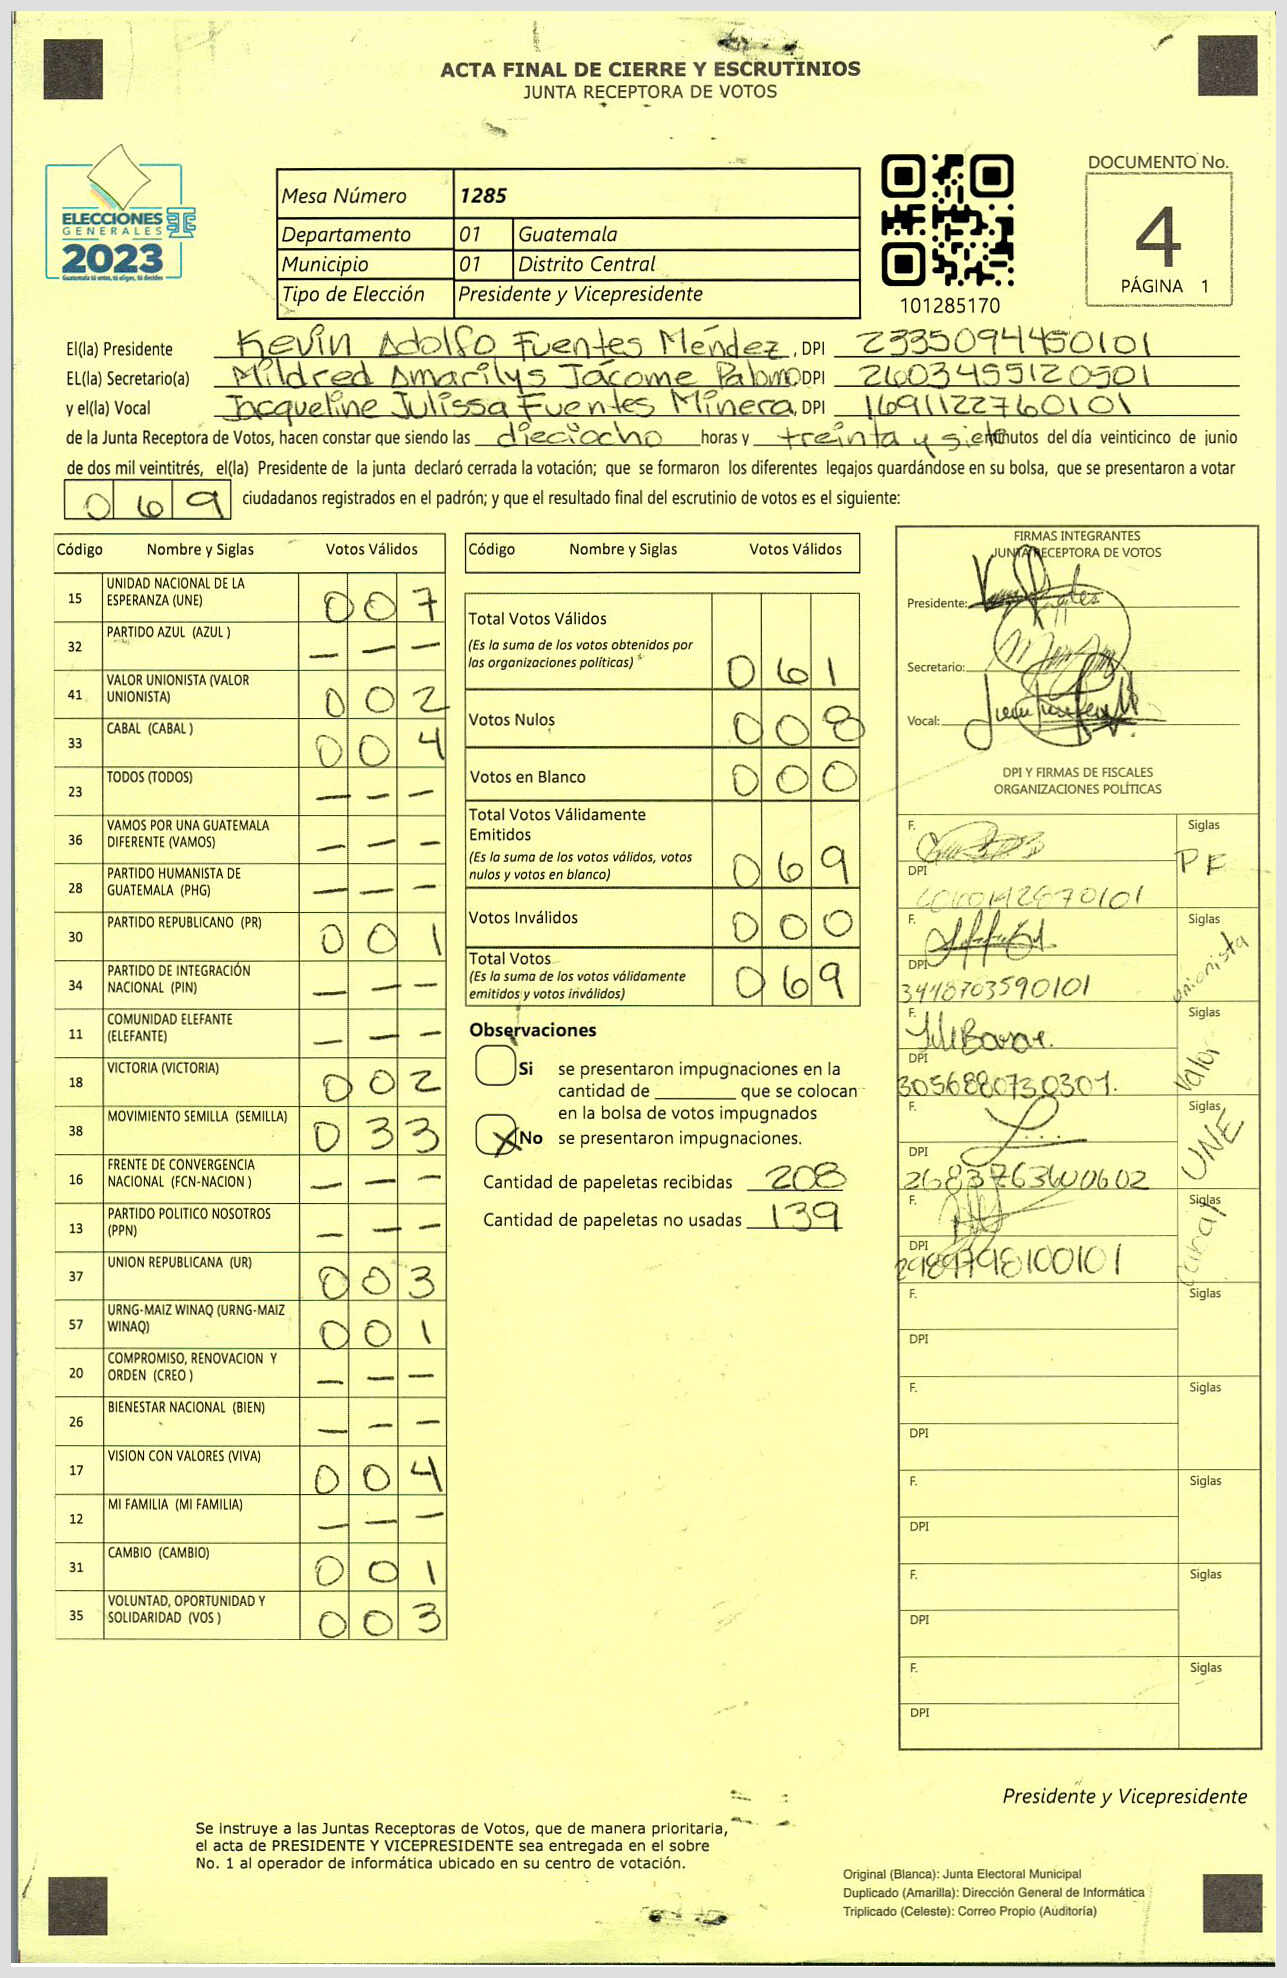 ACTA FINAL DE CIERRE Y ESCRUTINIOS
JUNTA RECEPTORA DE VOTOS
ELECCIONES
GENERALES
2023
Mesa Número 1285
Departamento 01 Guatemala
Municipio 01 Distrito Central
Tipo de Elección Presidente y Vicepresidente
101285170
DOCUMENTO No.
4
PÁGINA 1
El(la) Presidente Kevin Adolfo Fuentes Méndez, DPI 2335094450101
EL(la) Secretario(a) Mildred Amarilys Jácome Palomo DPI 2603455120501
y el(la) Vocal Jacqueline Julissa Fuentes Minera, DPI 1691122760101
de la Junta Receptora de Votos, hacen constar que siendo las dieciocho horas y treinta y siete minutos del día veinticinco de junio
de dos mil veintitrés, el(la) Presidente de la junta declaró cerrada la votación; que se formaron los diferentes legajos guardándose en su bolsa, que se presentaron a votar
069 ciudadanos registrados en el padrón; y que el resultado final del escrutinio de votos es el siguiente:
Código Nombre y Siglas Votos Válidos
15 UNIDAD NACIONAL DE LA ESPERANZA (UNE) 007
32 PARTIDO AZUL (AZUL ) — — —
41 VALOR UNIONISTA (VALOR UNIONISTA) 002
33 CABAL (CABAL ) 004
23 TODOS (TODOS) — — —
36 VAMOS POR UNA GUATEMALA DIFERENTE (VAMOS) — — —
28 PARTIDO HUMANISTA DE GUATEMALA (PHG) — — —
30 PARTIDO REPUBLICANO (PR) 001
34 PARTIDO DE INTEGRACIÓN NACIONAL (PIN) — — —
11 COMUNIDAD ELEFANTE (ELEFANTE) — — —
18 VICTORIA (VICTORIA) 002
38 MOVIMIENTO SEMILLA (SEMILLA) 033
16 FRENTE DE CONVERGENCIA NACIONAL (FCN-NACION ) — — —
13 PARTIDO POLITICO NOSOTROS (PPN) — — —
37 UNION REPUBLICANA (UR) 003
57 URNG-MAIZ WINAQ (URNG-MAIZ WINAQ) 001
20 COMPROMISO, RENOVACION Y ORDEN (CREO ) — — —
26 BIENESTAR NACIONAL (BIEN) — — —
17 VISION CON VALORES (VIVA) 004
12 MI FAMILIA (MI FAMILIA) — — —
31 CAMBIO (CAMBIO) 001
35 VOLUNTAD, OPORTUNIDAD Y SOLIDARIDAD (VOS ) 003
Código Nombre y Siglas Votos Válidos
Total Votos Válidos 061
(Es la suma de los votos obtenidos por
las organizaciones políticas)
Votos Nulos 008
Votos en Blanco 000
Total Votos Válidamente
Emitidos 069
(Es la suma de los votos válidos, votos
nulos y votos en blanco)
Votos Inválidos 000
Total Votos 069
(Es la suma de los votos válidamente
emitidos y votos inválidos)
Observaciones
Si se presentaron impugnaciones en la
cantidad de ________ que se colocan
en la bolsa de votos impugnados
X No se presentaron impugnaciones.
Cantidad de papeletas recibidas 208
Cantidad de papeletas no usadas 139
FIRMAS INTEGRANTES
JUNTA RECEPTORA DE VOTOS
Presidente:
Secretario:
Vocal:
DPI Y FIRMAS DE FISCALES
ORGANIZACIONES POLÍTICAS
F. Siglas PF
DPI
F. Siglas unionista
DPI 3448703590101
F. Siglas Valor
DPI 3056880730301.
F. Siglas UNE
DPI 2683763600602
F. Siglas
DPI 2989798100101
F. Siglas
DPI
F. Siglas
DPI
F. Siglas
DPI
F. Siglas
DPI
F. Siglas
DPI
Presidente y Vicepresidente
Se instruye a las Juntas Receptoras de Votos, que de manera prioritaria,
el acta de PRESIDENTE Y VICEPRESIDENTE sea entregada en el sobre
No. 1 al operador de informática ubicado en su centro de votación.
Original (Blanca): Junta Electoral Municipal
Duplicado (Amarilla): Dirección General de Informática
Triplicado (Celeste): Correo Propio (Auditoría)